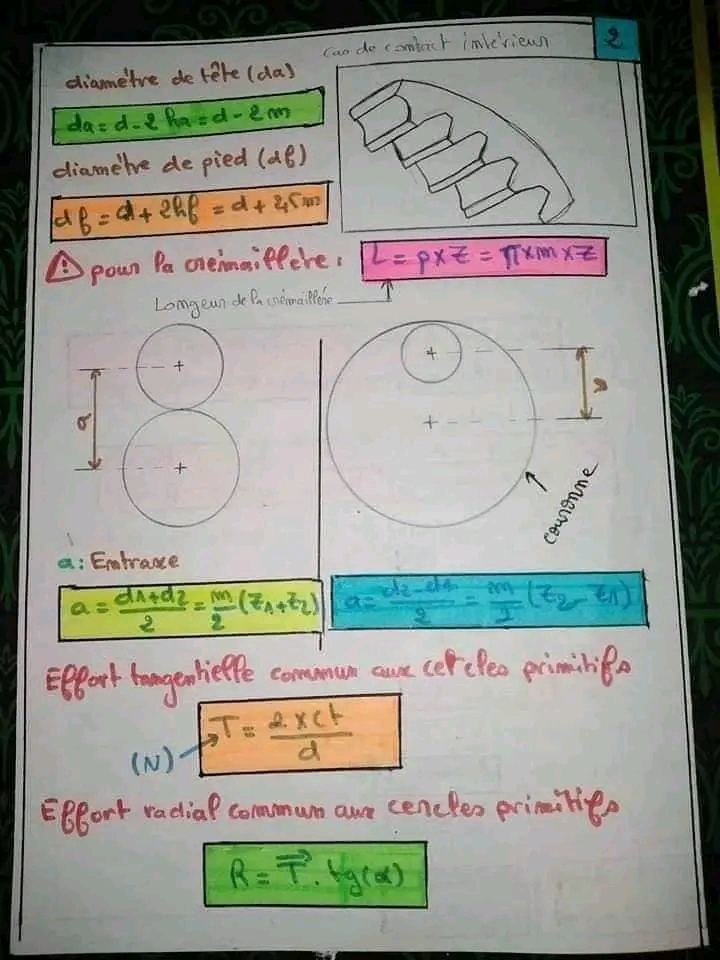 Cas de contact intérieur
2
diamétre de tête (da)
da = d - 2 ha = d - 2 m
diamétre de pied (df)
df = d + 2hf = d + 2,5 m
pour la crémaillère :
L = p x Z = π x m x Z
Longeur de la crémaillère
a
a
couronne
a : Entraxe
a = d1+d2/2 = m/2 (Z1+Z2)
a = d2-d1/2 = m/2 (Z2-Z1)
Effort tangentielle commun aux cercles primitifs
T = 2 x Ct/d
(N)
Effort radial commun aux cercles primitifs
R = T⃗ . tg(α)